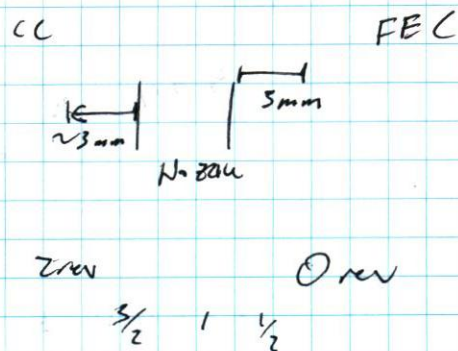 CC FEC
~3mm 5mm
Nozzle
2 rev 0 rev
3/2 1 1/2